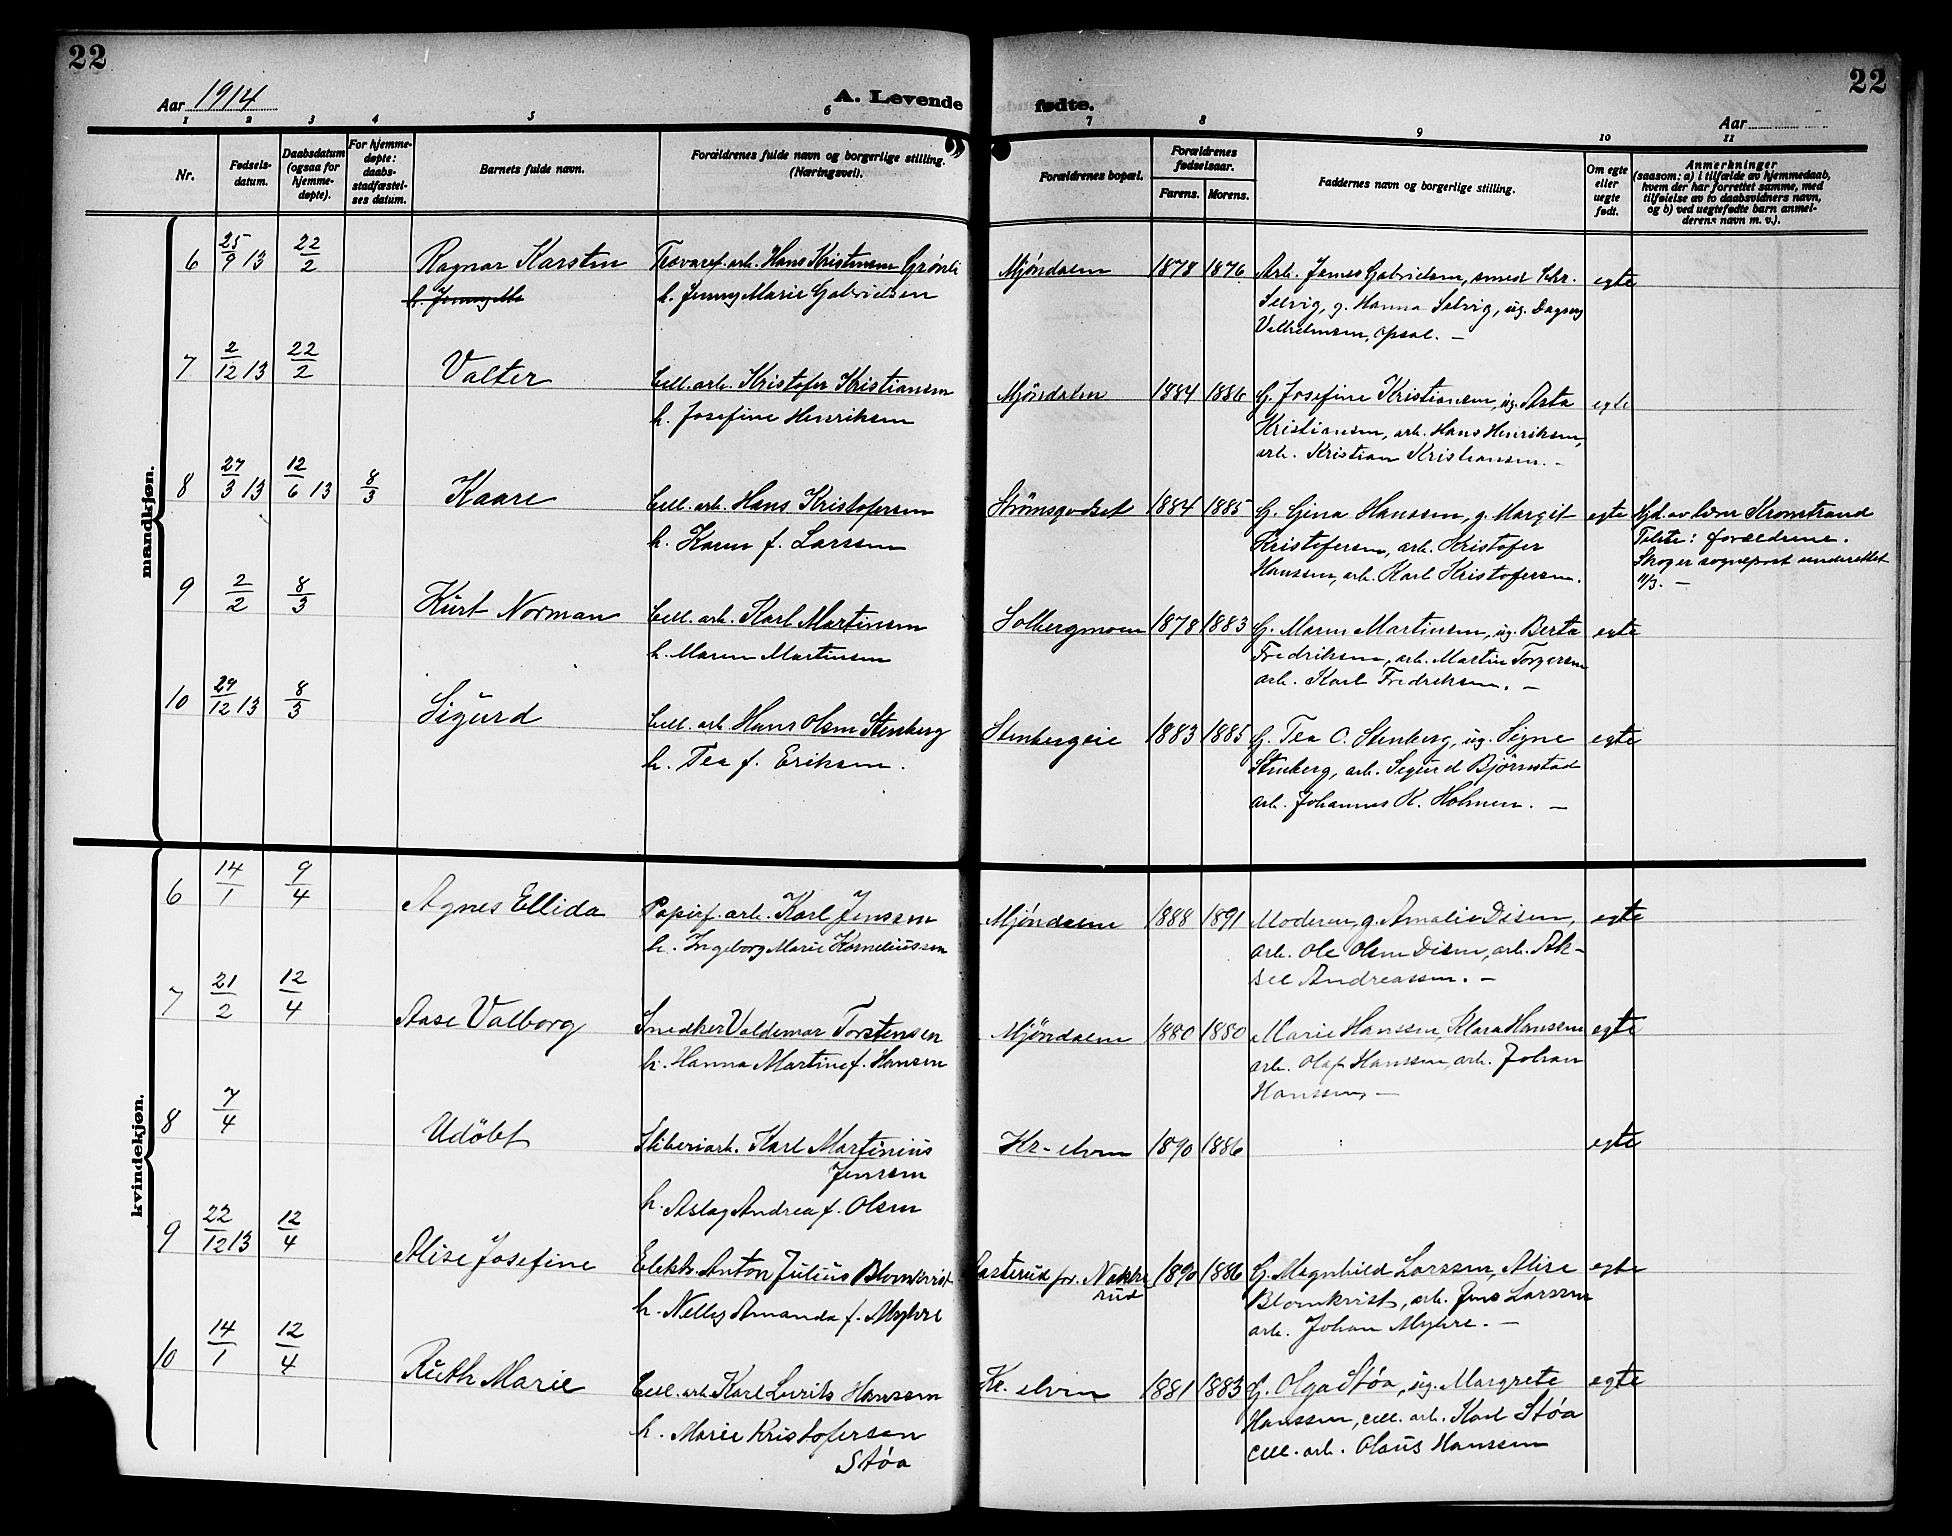 22
22
Aar 1914
A. Levende
fødte.
Aar
1
2
3
4
5
6
7
8
9
10
11
Nr.
Fødsels-
datum.
Daabsdatum
(ogsaa for
hjemme-
døpte).
For hjemme-
døpte:
daabs-
stadfæstel-
ses datum.
Barnets fulde navn.
Forældrenes fulde navn og borgerlige stilling.
(Næringsvei).
Forældrenes bopæl.
Forældrenes
fødselsaar.
Farens.
Morens.
Faddernes navn og borgerlige stilling.
Om egte
eller
uegte
født.
Anmerkninger
(saasom: a) i tilfælde av hjemmedaab,
hvem der har forrettet samme, med
tilføielse av to daabsvidners navn,
og b) ved uegtefødte barn anmel-
derens navn m. v.).
mandkjøn.
6 25/9 13 22/2 Ragnar Karsten Trævaref. arb. Hans Kristensen Grønli
h. Jenny Ma
h. Jenny Marie Gabrielsen
Mjöndalen 1878 1876 Arb. James Gabrielsen, smed Chr. egte
Selvig, g. Hanna Selvig, ug. Dagny
Vilhelmsen, Opsal. —
7 2/12 13 22/2 Valter Cell. arb. Kristofer Kristiansen
h. Josefine Henriksen
Mjöndalen 1884 1886 G. Josefine Kristiansen, ug. Asta egte
Kristiansen, arb. Hans Henriksen,
arb. Kristian Kristiansen. —
8 27/3 13 12/6 13 8/3 Kaare Cell. arb. Hans Kristofersen
h. Karen f. Larssen
Strömsgodset 1884 1885 G. Gina Hanssen, g. Margit egte
Kristofersen, arb. Kristofer
Hanssen, arb. Karl Kristofersen.
Hjd. av lærer Kromstrand
Tilste: forældrene.
Skoger sogneprest underrettet
11/3. —
9 2/2 8/3 Kurt Norman Cell. arb. Karl Martinsen
h. Maren Martinsen
Solbergmoen 1878 1883 G. Maren Martinsen, ug. Berta egte
Fredriksen, arb. Martin Torgersen
arb. Karl Fredriksen. —
10 29/12 13 8/3 Sigurd Cell. arb. Hans Olsen Stenberg
h. Tea f. Eriksen.
Stenbergeie 1883 1885 G. Tea O. Stenberg, ug. Signe egte
Stenberg, arb. Sigurd Björnstad
arb. Johannes K. Holmen. —
kvindekjøn.
6 14/1 9/4 Agnes Ellida Papirf. arb. Karl Jenssen
h. Ingeborg Marie Korneliussen
Mjöndalen 1888 1891 Moderen, g. Amalie Disen, egte
arb. Ole Olsen Disen, arb. Ak-
sel Andreassen. —
7 21/2 12/4 Aase Valborg Snedker Valdemar Torstensen
h. Hanna Martine f. Hansen
Mjöndalen 1880 1880 Marie Hanssen, Klara Hansen egte
arb. Olaf Hanssen, arb. Johan
Hanssen, —
8 7/4 Udöbt Sliberiarb. Karl Martinius
Jenssen
h. Aslaug Andrea f. Olsen
Kr-elven 1890 1886 egte
9 22/12 13 12/4 Alise Josefine Elektr. Anton Julius Blomkvist
h. Nelly Amanda f. Myhre
1890 1886 G. Magnhild Larssen, Alise egte
Blomkvist, arb. Jens Larssen
arb. Johan Myhre. —
10 14/1 12/4 Ruth Marie Cell. arb. Karl Lurits Hanssen
h. Marie Kristofersen
Støa
Kr. elven 1881 1883 G. Olga Støa, ug. Margrete egte
Hanssen, cell. arb. Karl Støa
cell. arb. Olaus Hanssen